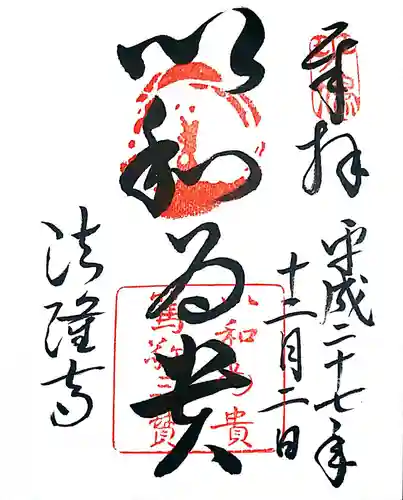 奉拝
平成二十七年
十二月二日
以和為貴
以和為貴
篤敬三寶
法隆寺